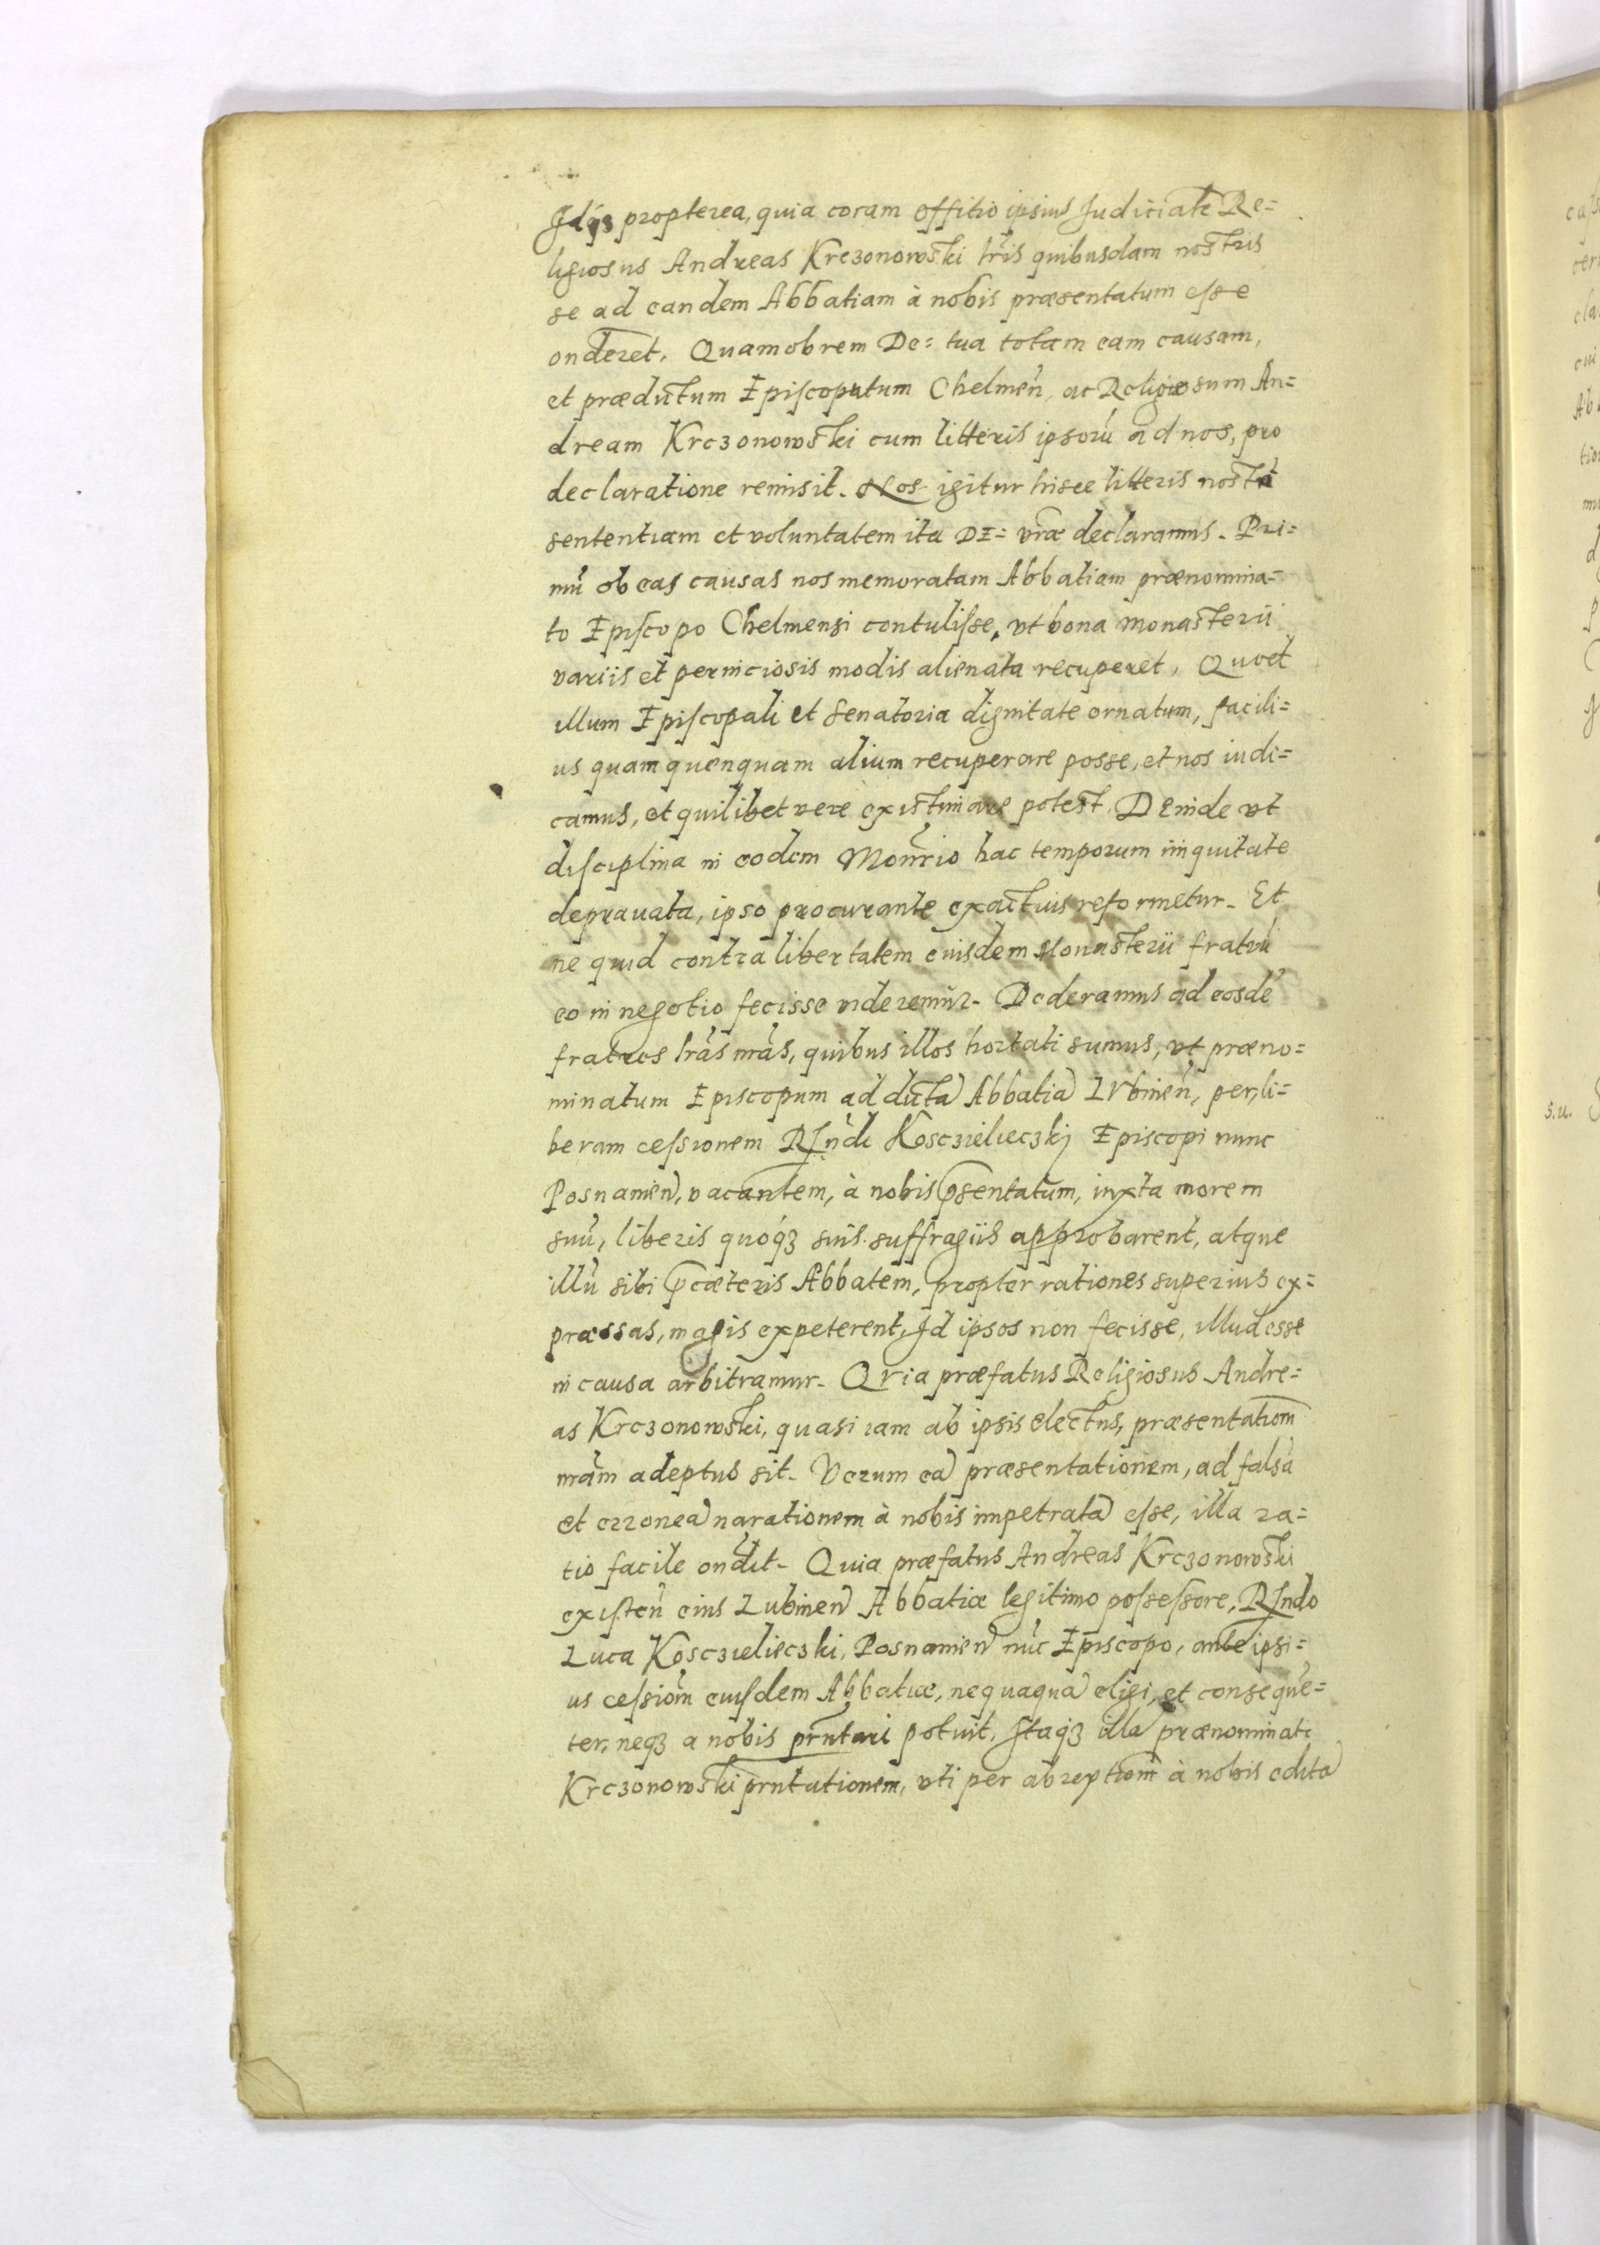 Idq3 propterea, quia coram offitio ipsius Judiciale Re=
ligiosus Andreas Krczonowski lr̃is quibusdam nostris
se ad eandem Abbatiam à nobis præsentatum esse
onderet. Quamobrem De= tua totam eam causam,
et prædictum Episcopatum Chelmeñ, ac Religiosum An=
dream Krczonowski cum litteris ipsorũ ad nos, pro
declaratione remisit. Nos igitur hisce litteris nostrã
sententiam et voluntatem ita DE= vr̃æ declaramus. Pri=
mũ ob eas causas nos memoratam Abbatiam prænomina=
to Episcopo Chelmensi contulisse, vt bona monasterii
variis et perniciosis modis alienata recuperet, Quæ et
illum Episcopali et Senatoria dignitate ornatum, facili=
us quam quenquam alium recuperare posse, et nos iudi=
camus, et quilibet vere existimare potest. Deinde vt
disciplina in eodem Moñrio hac temporum iniquitate
deprauata, ipso procurante exactius reformetur. Et
ne quid contra libertatem eiusdem Monasterii fratrũ
eo in negotio fecisse videremur. Dederamus ad eosdẽ
fratres lr̃as nr̃as, quibus illos hortati sumus, vt præno=
minatum Episcopum ad dictã Abbatiã Lubineñ, per li=
beram cessionem Rñdi Kosczielieczkj Episcopi nunc
Posnanieñ, vacantem, à nobis p̃sentatum, iuxta morem
suũ, liberis quoq3 suis suffragiis approbarent, atque
illũ sibi p̃ cæteris Abbatem, propter rationes superius ex=
præssas, magis expeterent, Id ipsos non fecisse, illud esse
in causa arbitramur. Qvia præfatus Religiosus Andre=
as Krczonowski, quasi iam ab ipsis electus, præsentatiom̃
nr̃am adeptus sit. Verum eã præsentationem, ad falsã
et erroneã narationem à nobis impetratã esse, illa ra=
tio facile ondit. Quia præfatus Andreas Krczonowski
existeñ eius Lubineñ Abbatiæ legitimo possessore, Rñdo
Luca Kosczielieczki, Posnanieñ nũc Episcopo, ante ipsi=
us cessiom̃ eiusdem Abbatiæ, nequaquã eligi, et consequẽ=
ter, neq3 a nobis prñtari potuit, Itaq3 illã prænominati
Krczonowski prñtationem, vti per abreptiom̃ à nobis editã